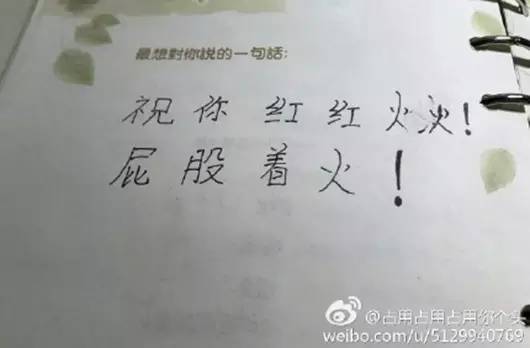 最想對你說的一句話:
祝你红红火火!
屁股着火!
@占用占用占用你个头
weibo.com/u/5129940769